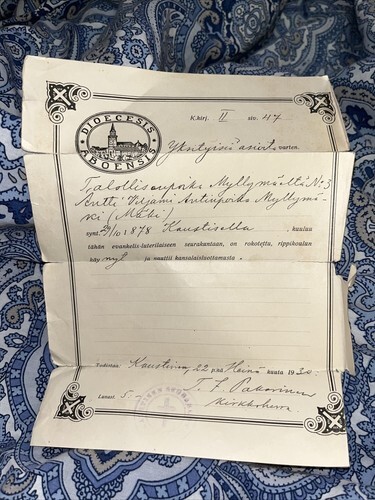 K.kirj. II siv. 47
DIOECESIS
ABOENSIS
Yksityisiä asioita varten.
Talollisenpoika Myllymäeltä N:o 3
Antti Viljami Antinpoika Myllymä-
ki (Mäki)
synt. 29/10 1878 Kaustisella, kuuluu
tähän evankelis-luterilaiseen seurakuntaan, on rokotettu, rippikoulun
käynyt ja nauttii kansalaisluottamusta.
Todistaa: Kaustinen 22 p:nä Heinä kuuta 1930.
T. F. Pakarinen
Lunast. 5:-
Kirkkoherra.